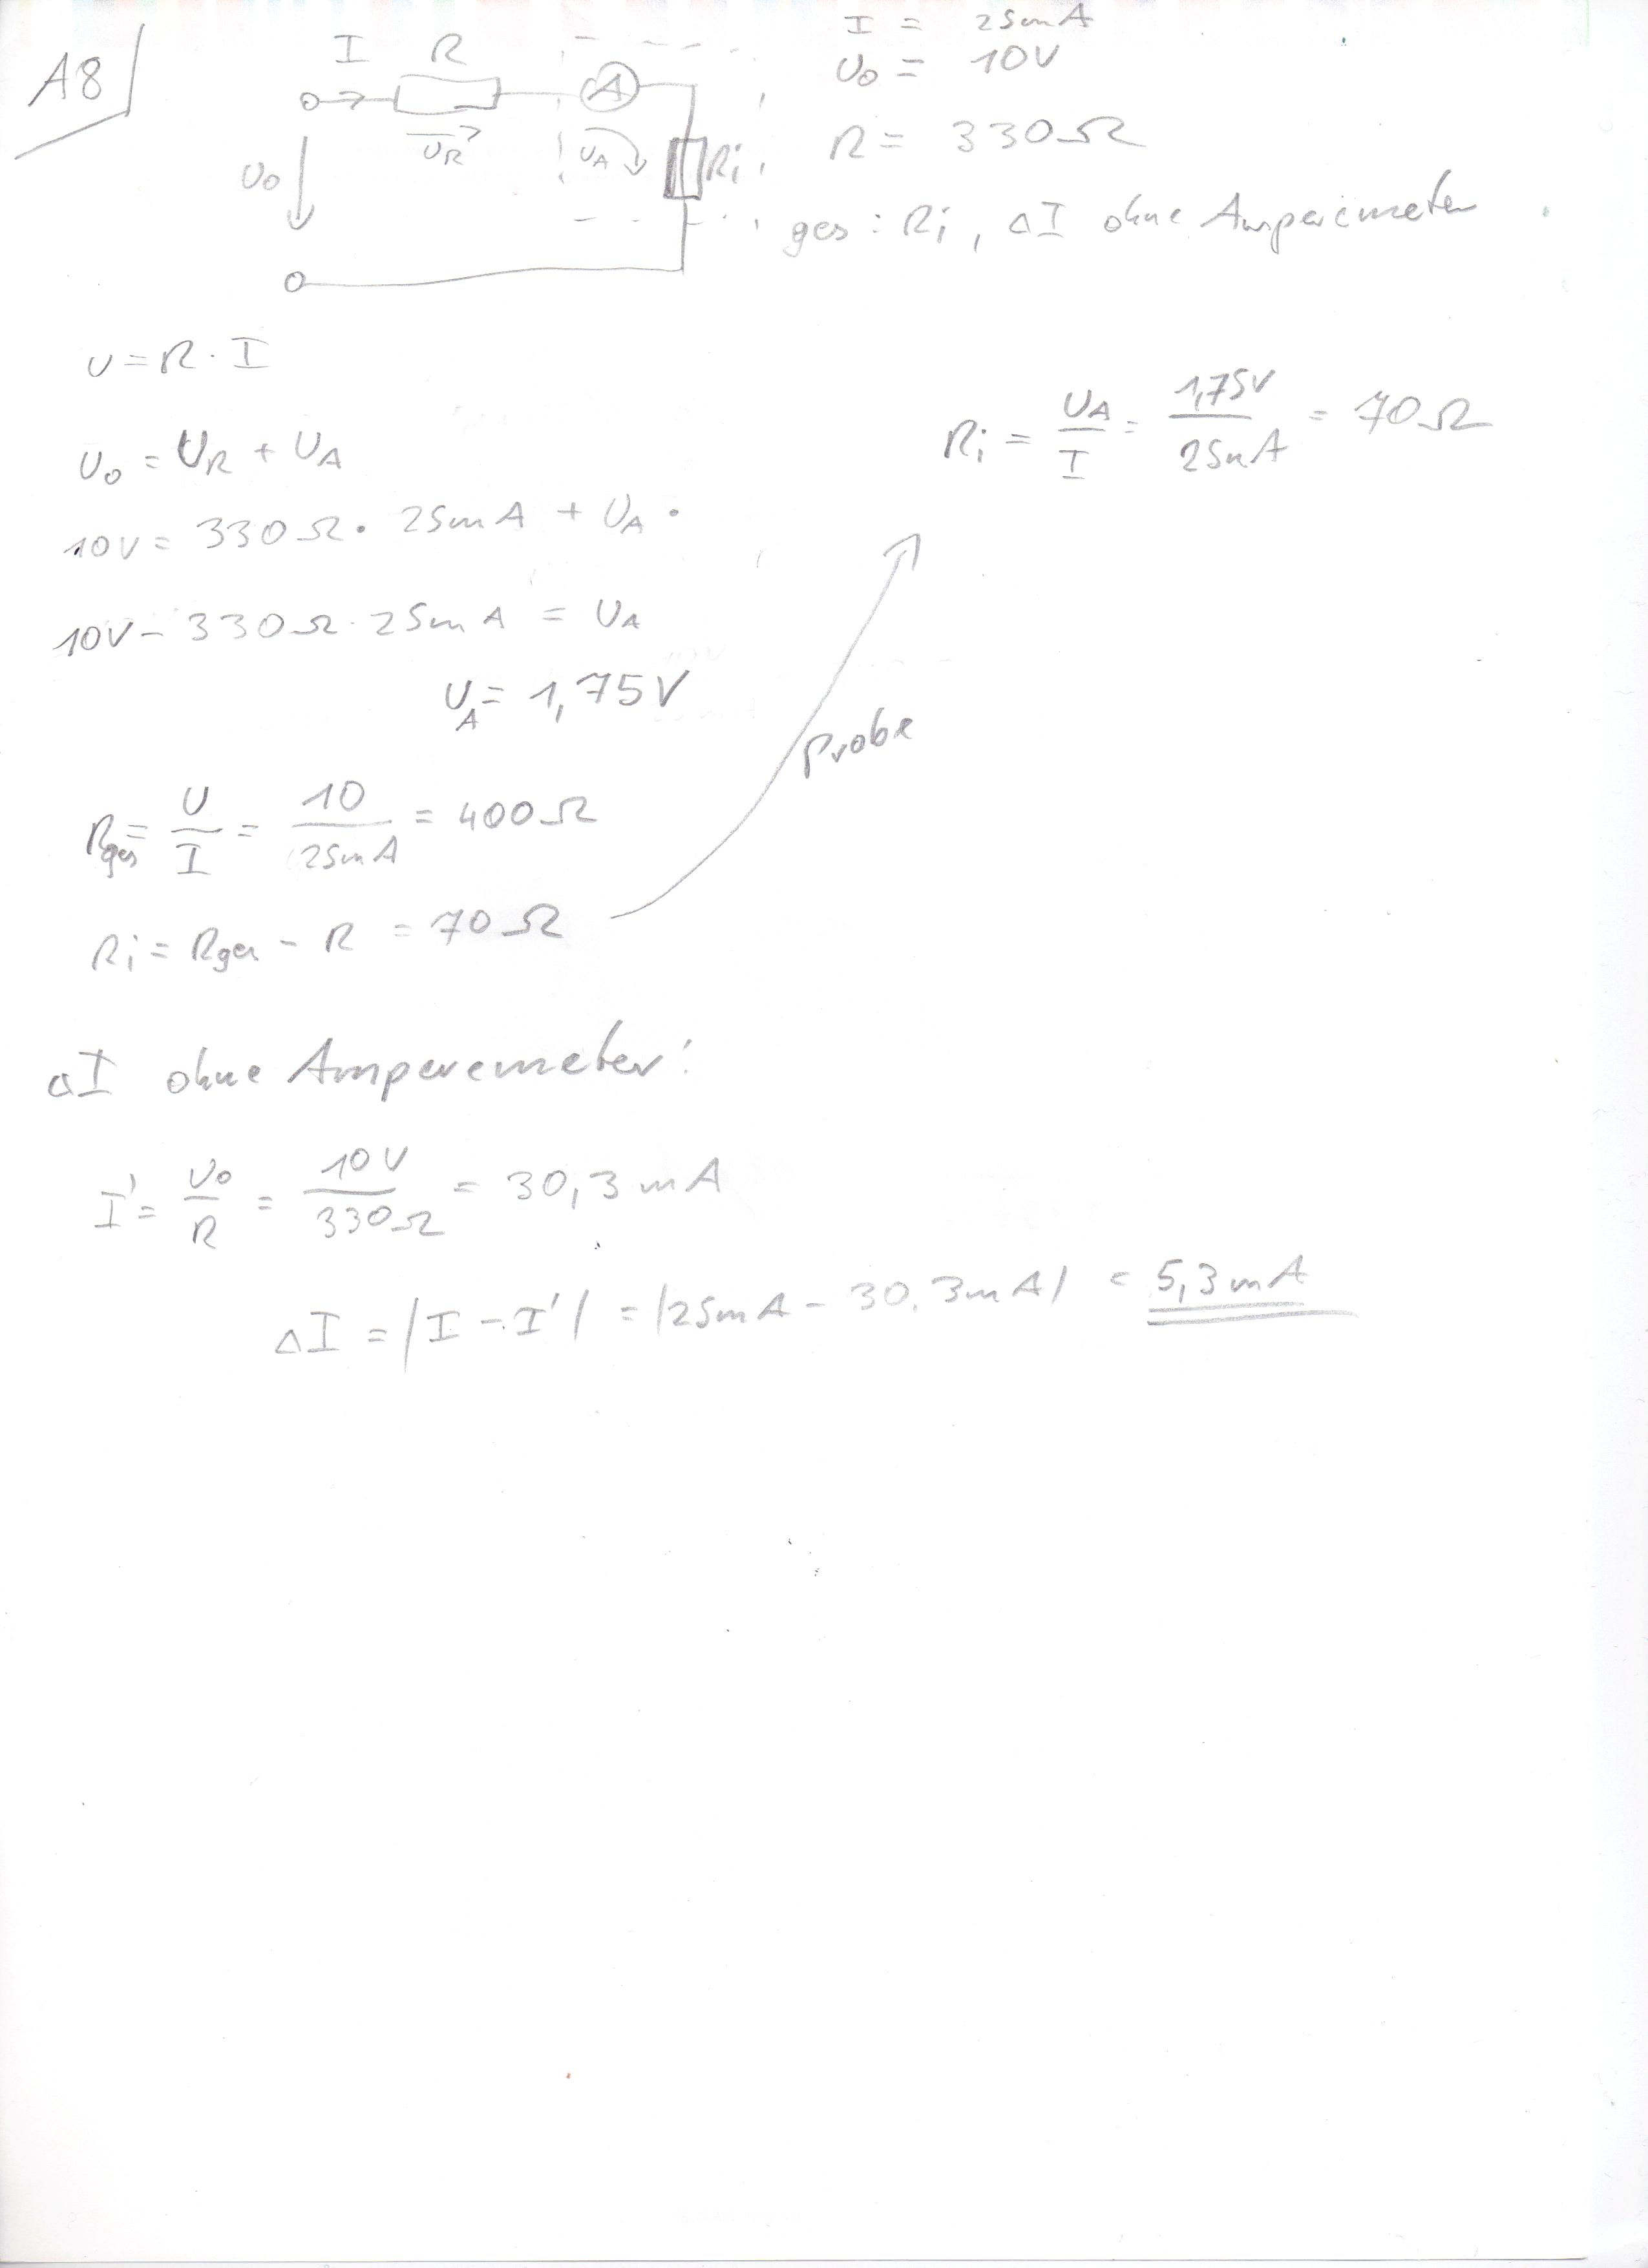 A8
I R
U0 UR A UA Ri
I = 25mA
U0 = 10V
R = 330Ω
ges: Ri, ΔI ohne Amperemeter
U = R · I
U0 = UR + UA
10V = 330Ω · 25mA + UA
10V - 330Ω · 25mA = UA
UA = 1,75V
Ri = UA / I = 1,75V / 25mA = 70Ω
Rges = U / I = 10 / 25mA = 400Ω
Ri = Rges - R = 70Ω
Probe
ΔI ohne Amperemeter:
I' = U0 / R = 10V / 330Ω = 30,3mA
ΔI = |I - I'| = |25mA - 30,3mA| = 5,3mA